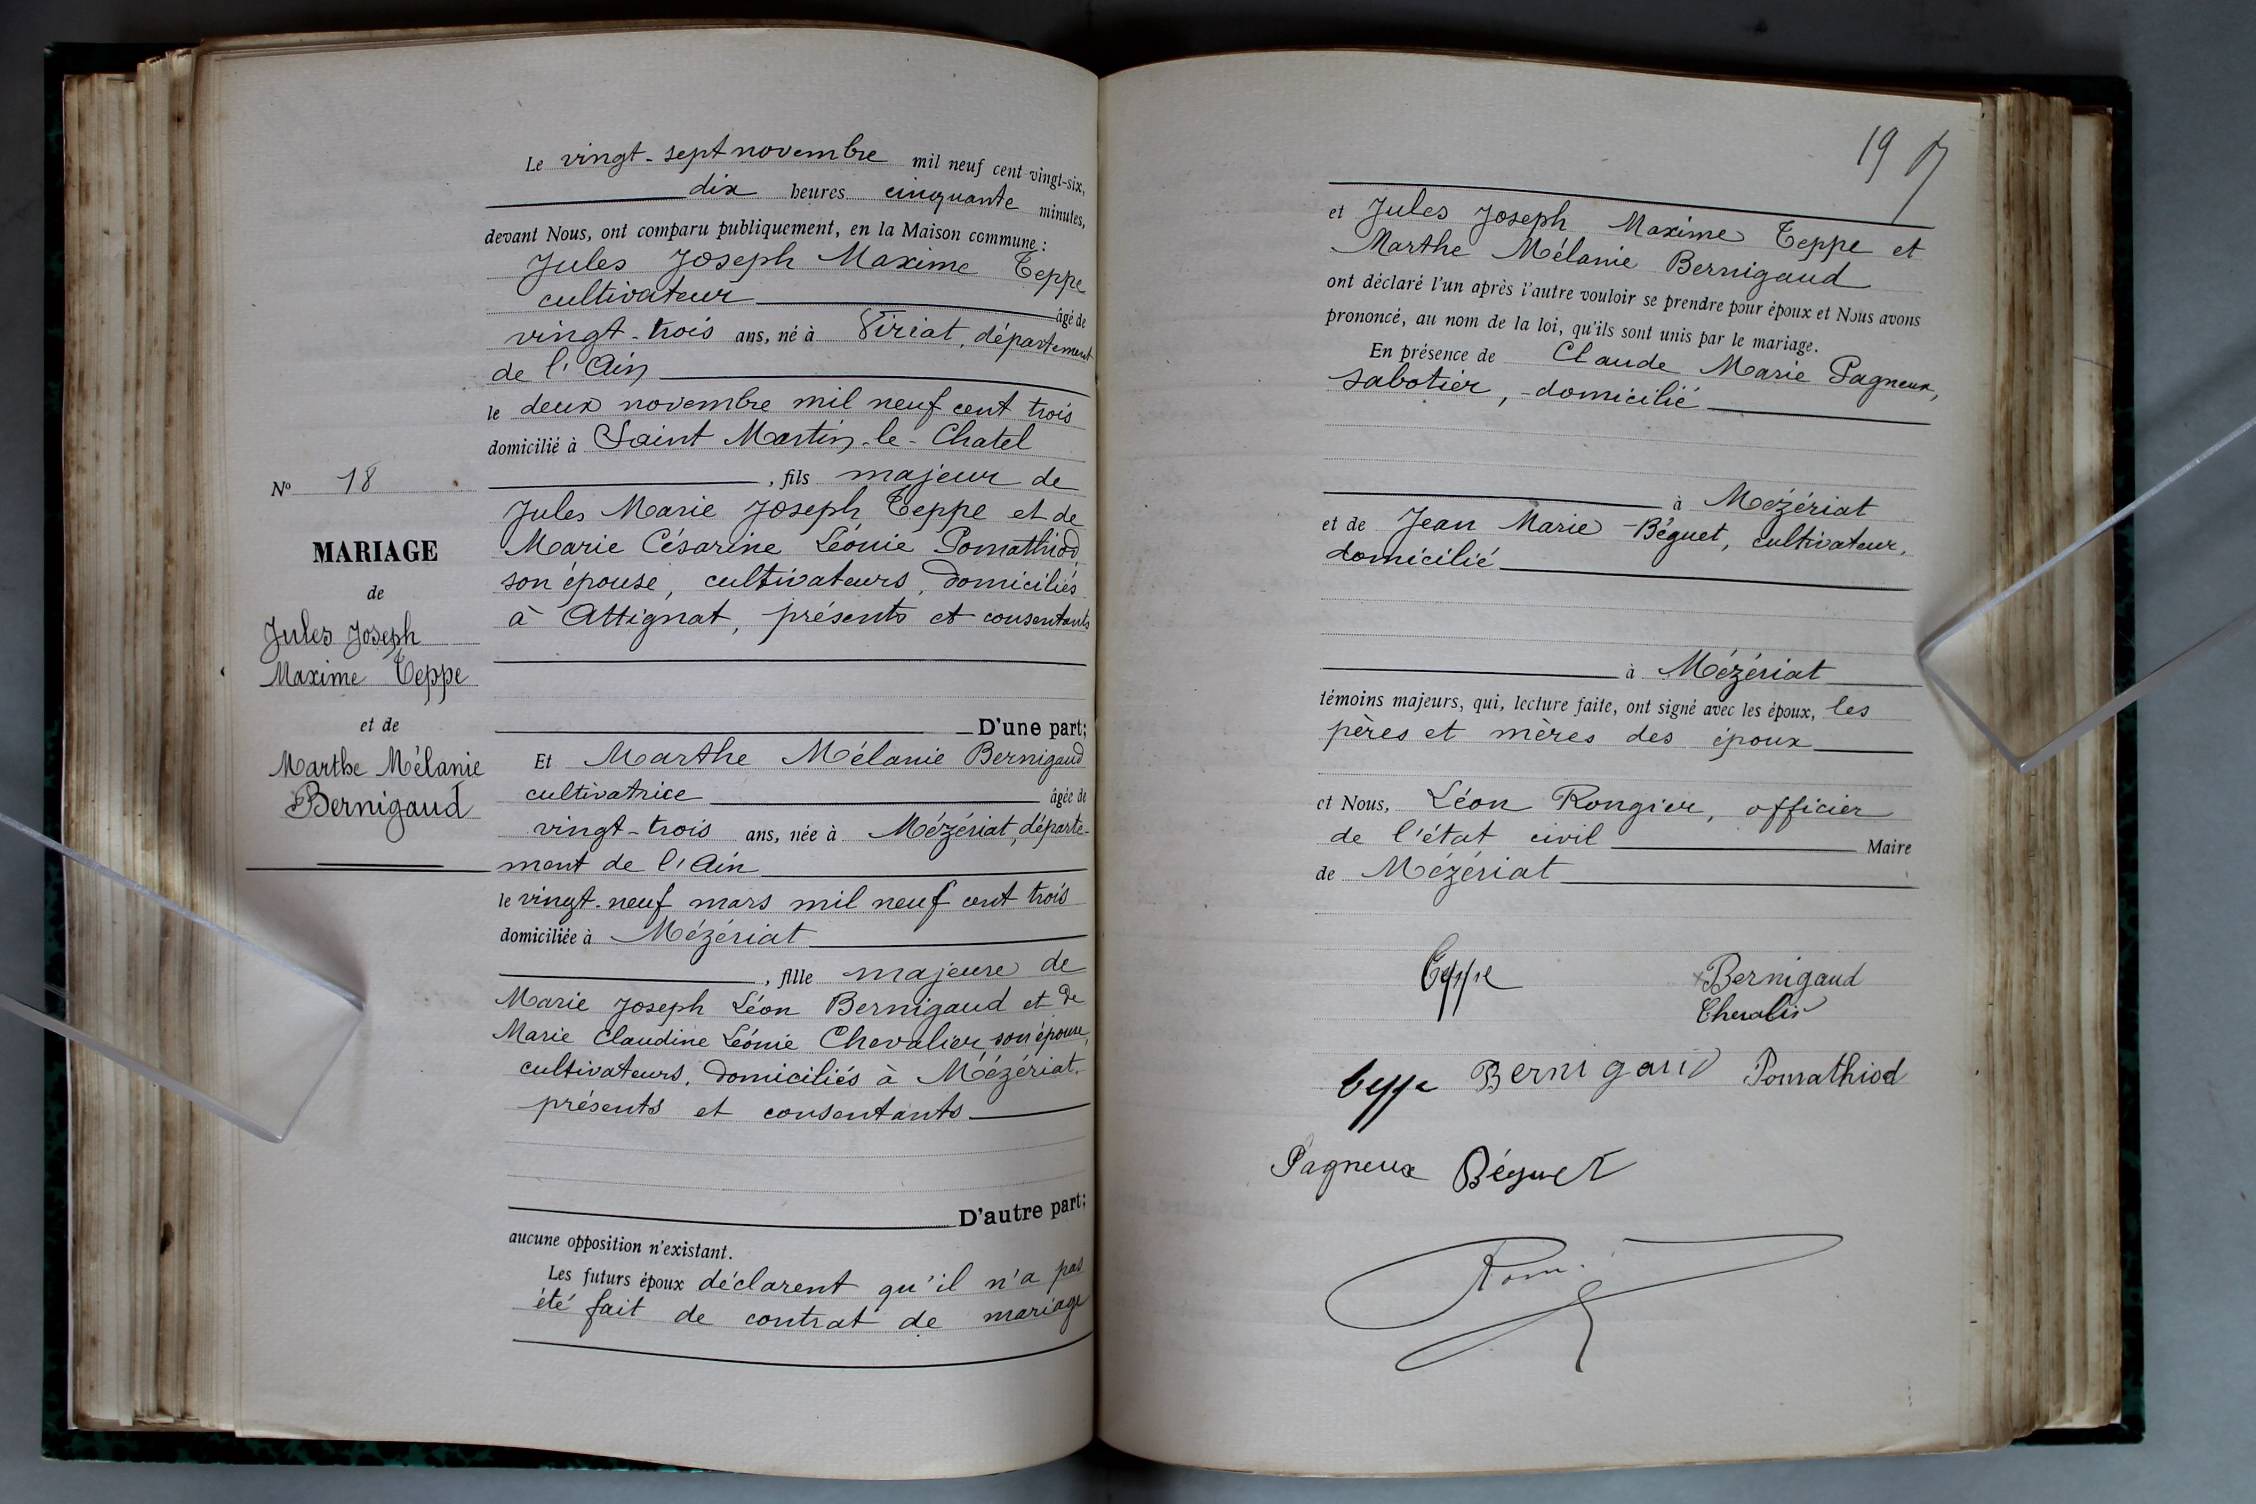 Le vingt-sept novembre mil neuf cent vingt-six,
dix heures cinquante minutes,
devant Nous, ont comparu publiquement, en la Maison commune :
Jules Joseph Maxime Teppe
cultivateur âgé de
vingt-trois ans, né à Viriat, département
de l'Ain
le deux novembre mil neuf cent trois
domicilié à Saint Martin-le-Chatel
, fils majeur de
Jules Marie Joseph Teppe et de
Marie Césarine Léonie Pomathiod
son épouse, cultivateurs, domiciliés
à Attignat, présents et consentants
D'une part;
Et Marthe Mélanie Bernigaud
cultivatrice âgée de
vingt-trois ans, née à Mézériat, départe-
ment de l'Ain
le vingt-neuf mars mil neuf cent trois
domiciliée à Mézériat
, fille majeure de
Marie Joseph Léon Bernigaud et de
Marie Claudine Léonie Chevalier, son épouse,
cultivateurs, domiciliés à Mézériat,
présents et consentants
D'autre part;
aucune opposition n'existant.
Les futurs époux déclarent qu'il n'a pas
été fait de contrat de mariage
No 18
MARIAGE
de
Jules Joseph
Maxime Teppe
et de
Marthe Mélanie
Bernigaud
19
et Jules Joseph Maxime Teppe et
Marthe Mélanie Bernigaud
ont déclaré l'un après l'autre vouloir se prendre pour époux et Nous avons
prononcé, au nom de la loi, qu'ils sont unis par le mariage.
En présence de Claude Marie Pagneux,
sabotier, domicilié
à Mézériat
et de Jean Marie Béguet, cultivateur,
domicilié
à Mézériat
témoins majeurs, qui, lecture faite, ont signé avec les époux, les
pères et mères des époux
et Nous, Léon Rongier, officier
de l'état civil Maire
de Mézériat
Teppe Bernigaud
Chevalier
Teppe Bernigaud Pomathiod
Pagneux Béguet